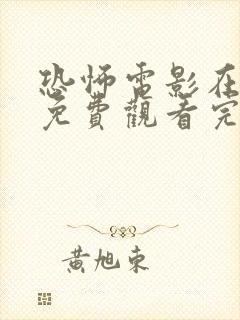 恐怖電影在
免費觀看完
黃旭東